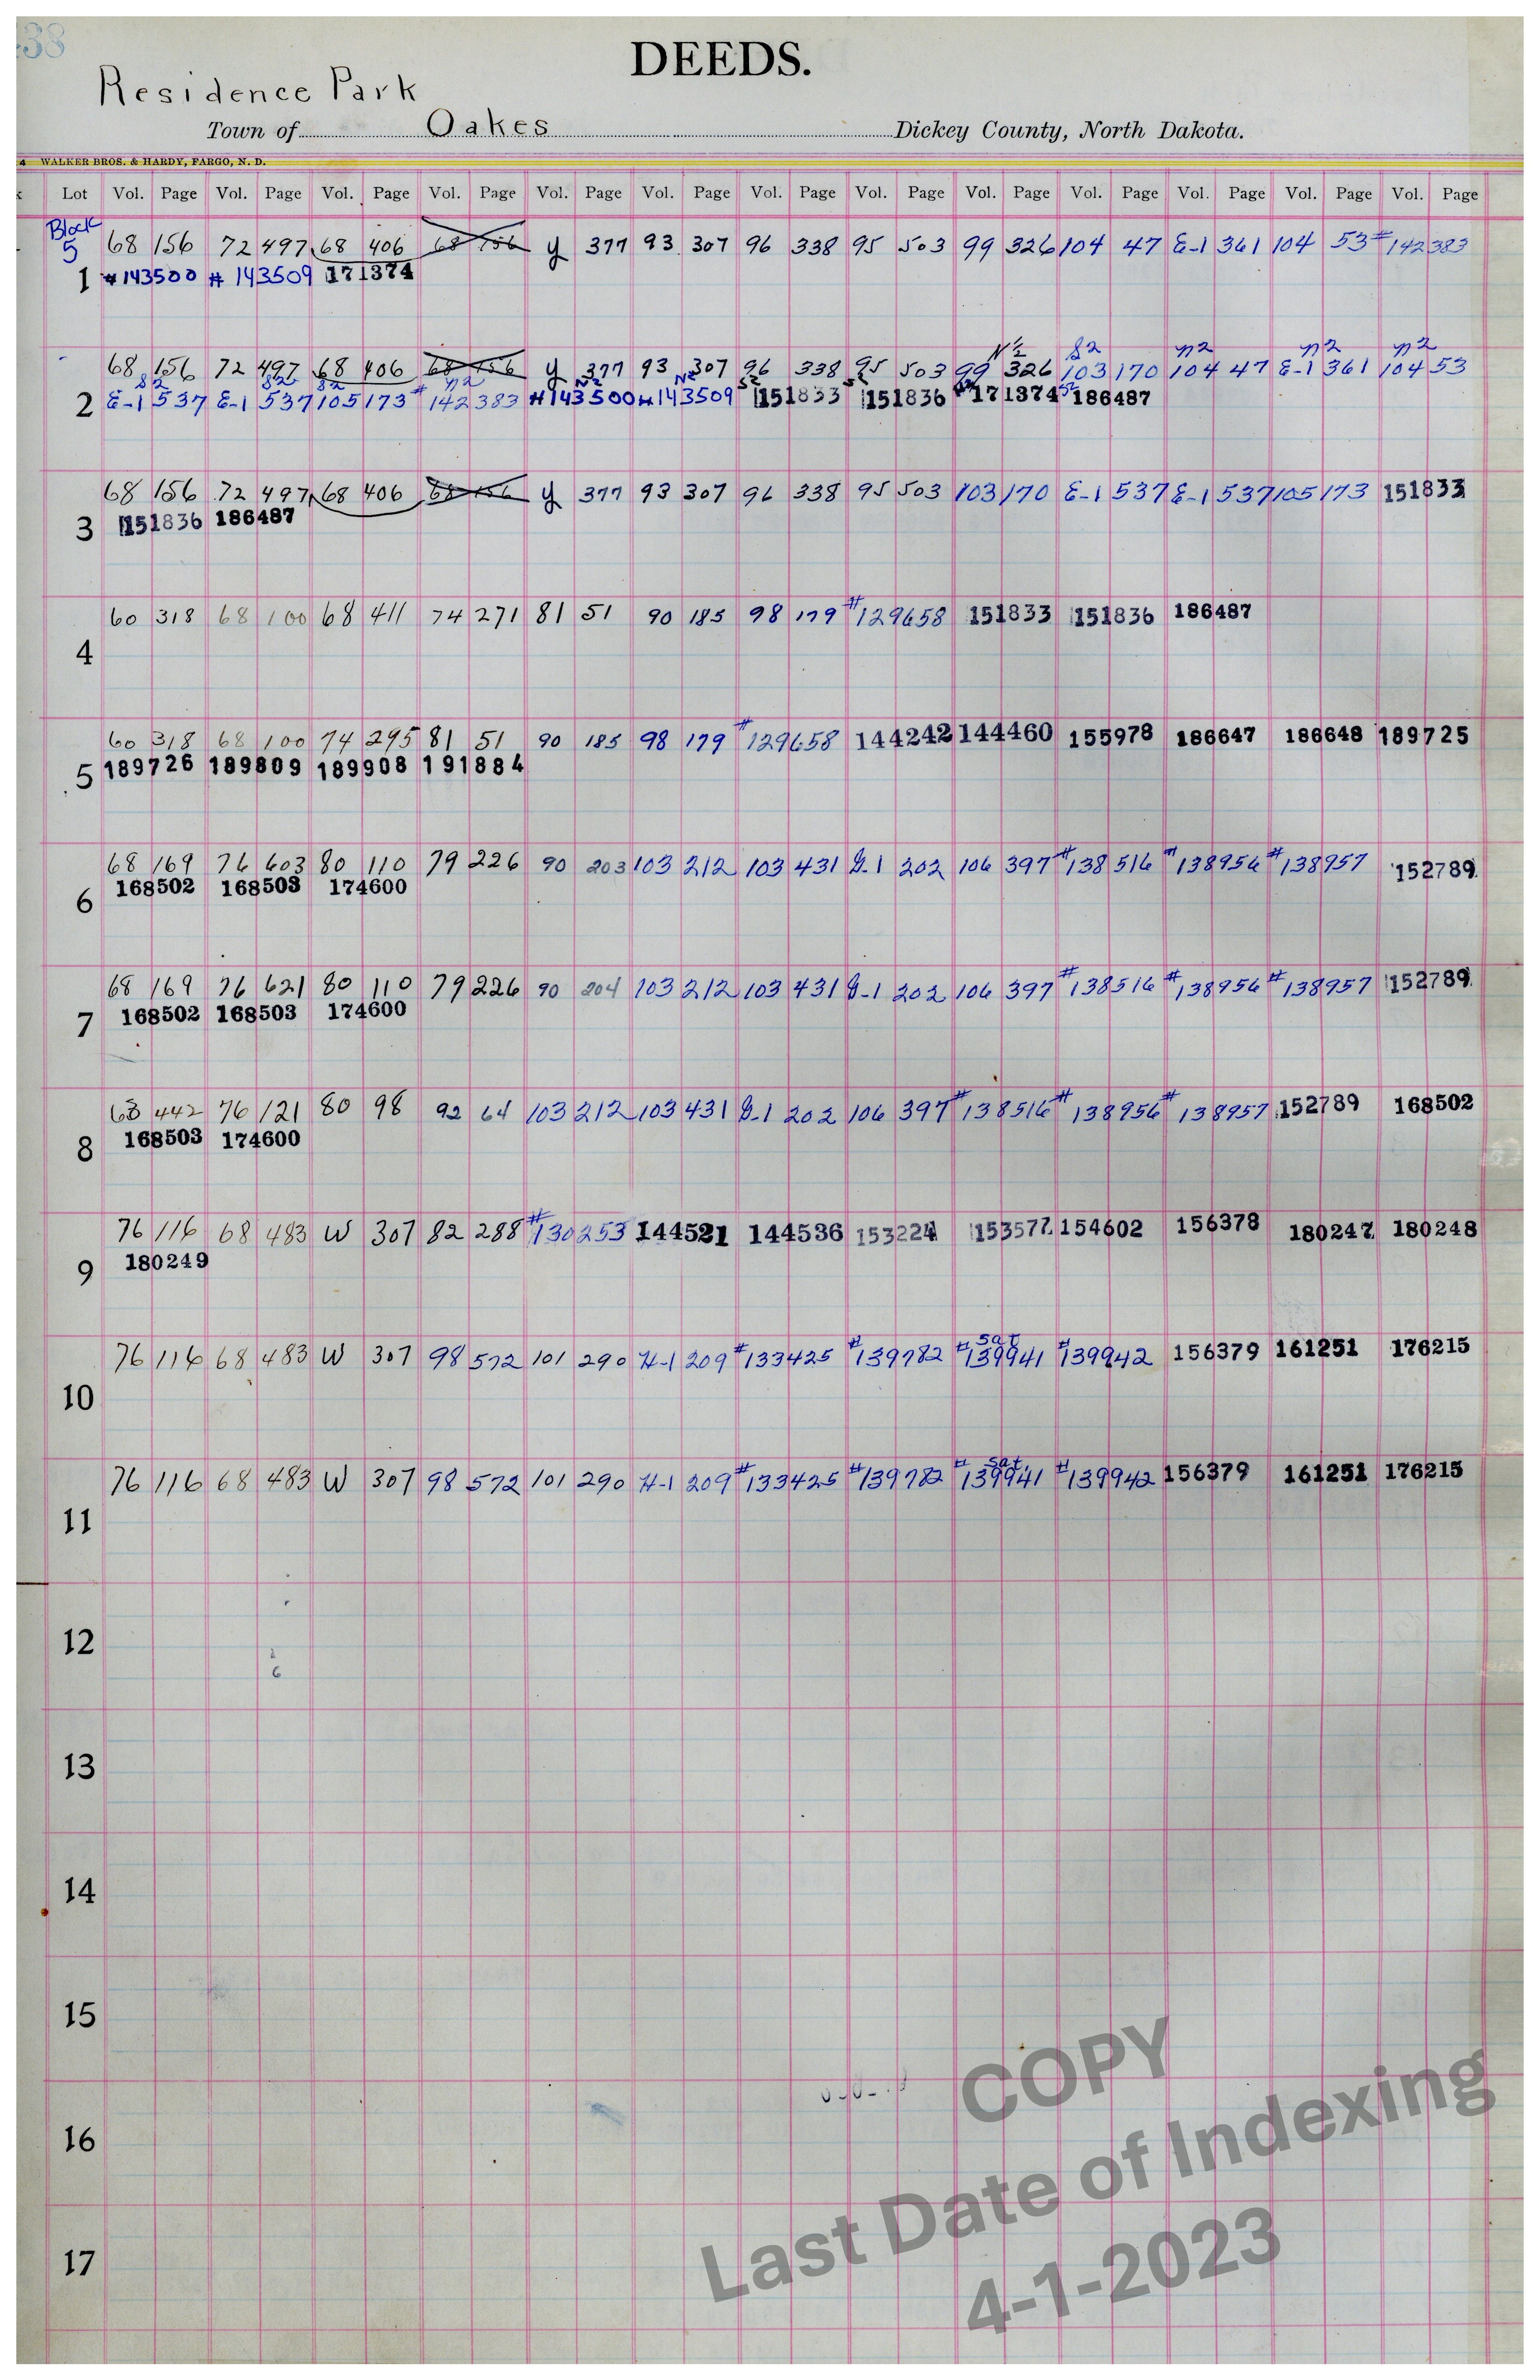 438
DEEDS.
Residence Park
Town of Oakes Dickey County, North Dakota.
4 WALKER BROS. & HARDY, FARGO, N. D.
k Lot Vol. Page Vol. Page Vol. Page Vol. Page Vol. Page Vol. Page Vol. Page Vol. Page Vol. Page Vol. Page Vol. Page Vol. Page Vol. Page
Block
5 68 156 72 497 68 406 68 156 y 377 93 307 96 338 95 503 99 326 104 47 E-1 361 104 53 #142383
1 #143500 #143509 171374
N½ S2 n2 n2 n2
68 156 72 497 68 406 68 156 y 377 93 307 96 338 95 503 99 326 103 170 104 47 E-1 361 104 53
S2 S2 S2 n2 N2 N2 S2 S2 S2
2 E-1 537 E-1 537 105 173 #142383 #143500 #143509 151833 151836 171374 186487
68 156 72 497 68 406 68 156 y 377 93 307 96 338 95 503 103 170 E-1 537 E-1 537 105 173 151833
3 151836 186487
60 318 68 100 68 411 74 271 81 51 90 185 98 179 #129658 151833 151836 186487
4
60 318 68 100 74 295 81 51 90 185 98 179 #129658 144242 144460 155978 186647 186648 189725
5 189726 189809 189908 191884
68 169 76 603 80 110 79 226 90 203 103 212 103 431 G-1 202 106 397 #138516 #138956 #138957 152789
6 168502 168503 174600
68 169 76 621 80 110 79 226 90 204 103 212 103 431 G-1 202 106 397 #138516 #138956 #138957 152789
7 168502 168503 174600
68 442 76 121 80 98 92 64 103 212 103 431 G-1 202 106 397 #138516 #138956 #138957 152789 168502
8 168503 174600
76 116 68 483 W 307 82 288 #130253 144521 144536 153224 153577 154602 156378 180247 180248
9 180249
sat
76 116 68 483 W 307 98 572 101 290 H-1 209 #133425 #139782 #139941 #139942 156379 161251 176215
10
sat
76 116 68 483 W 307 98 572 101 290 H-1 209 #133425 #139782 #139941 #139942 156379 161251 176215
11
12
6
13
14
15
16
17
COPY
Last Date of Indexing
4-1-2023